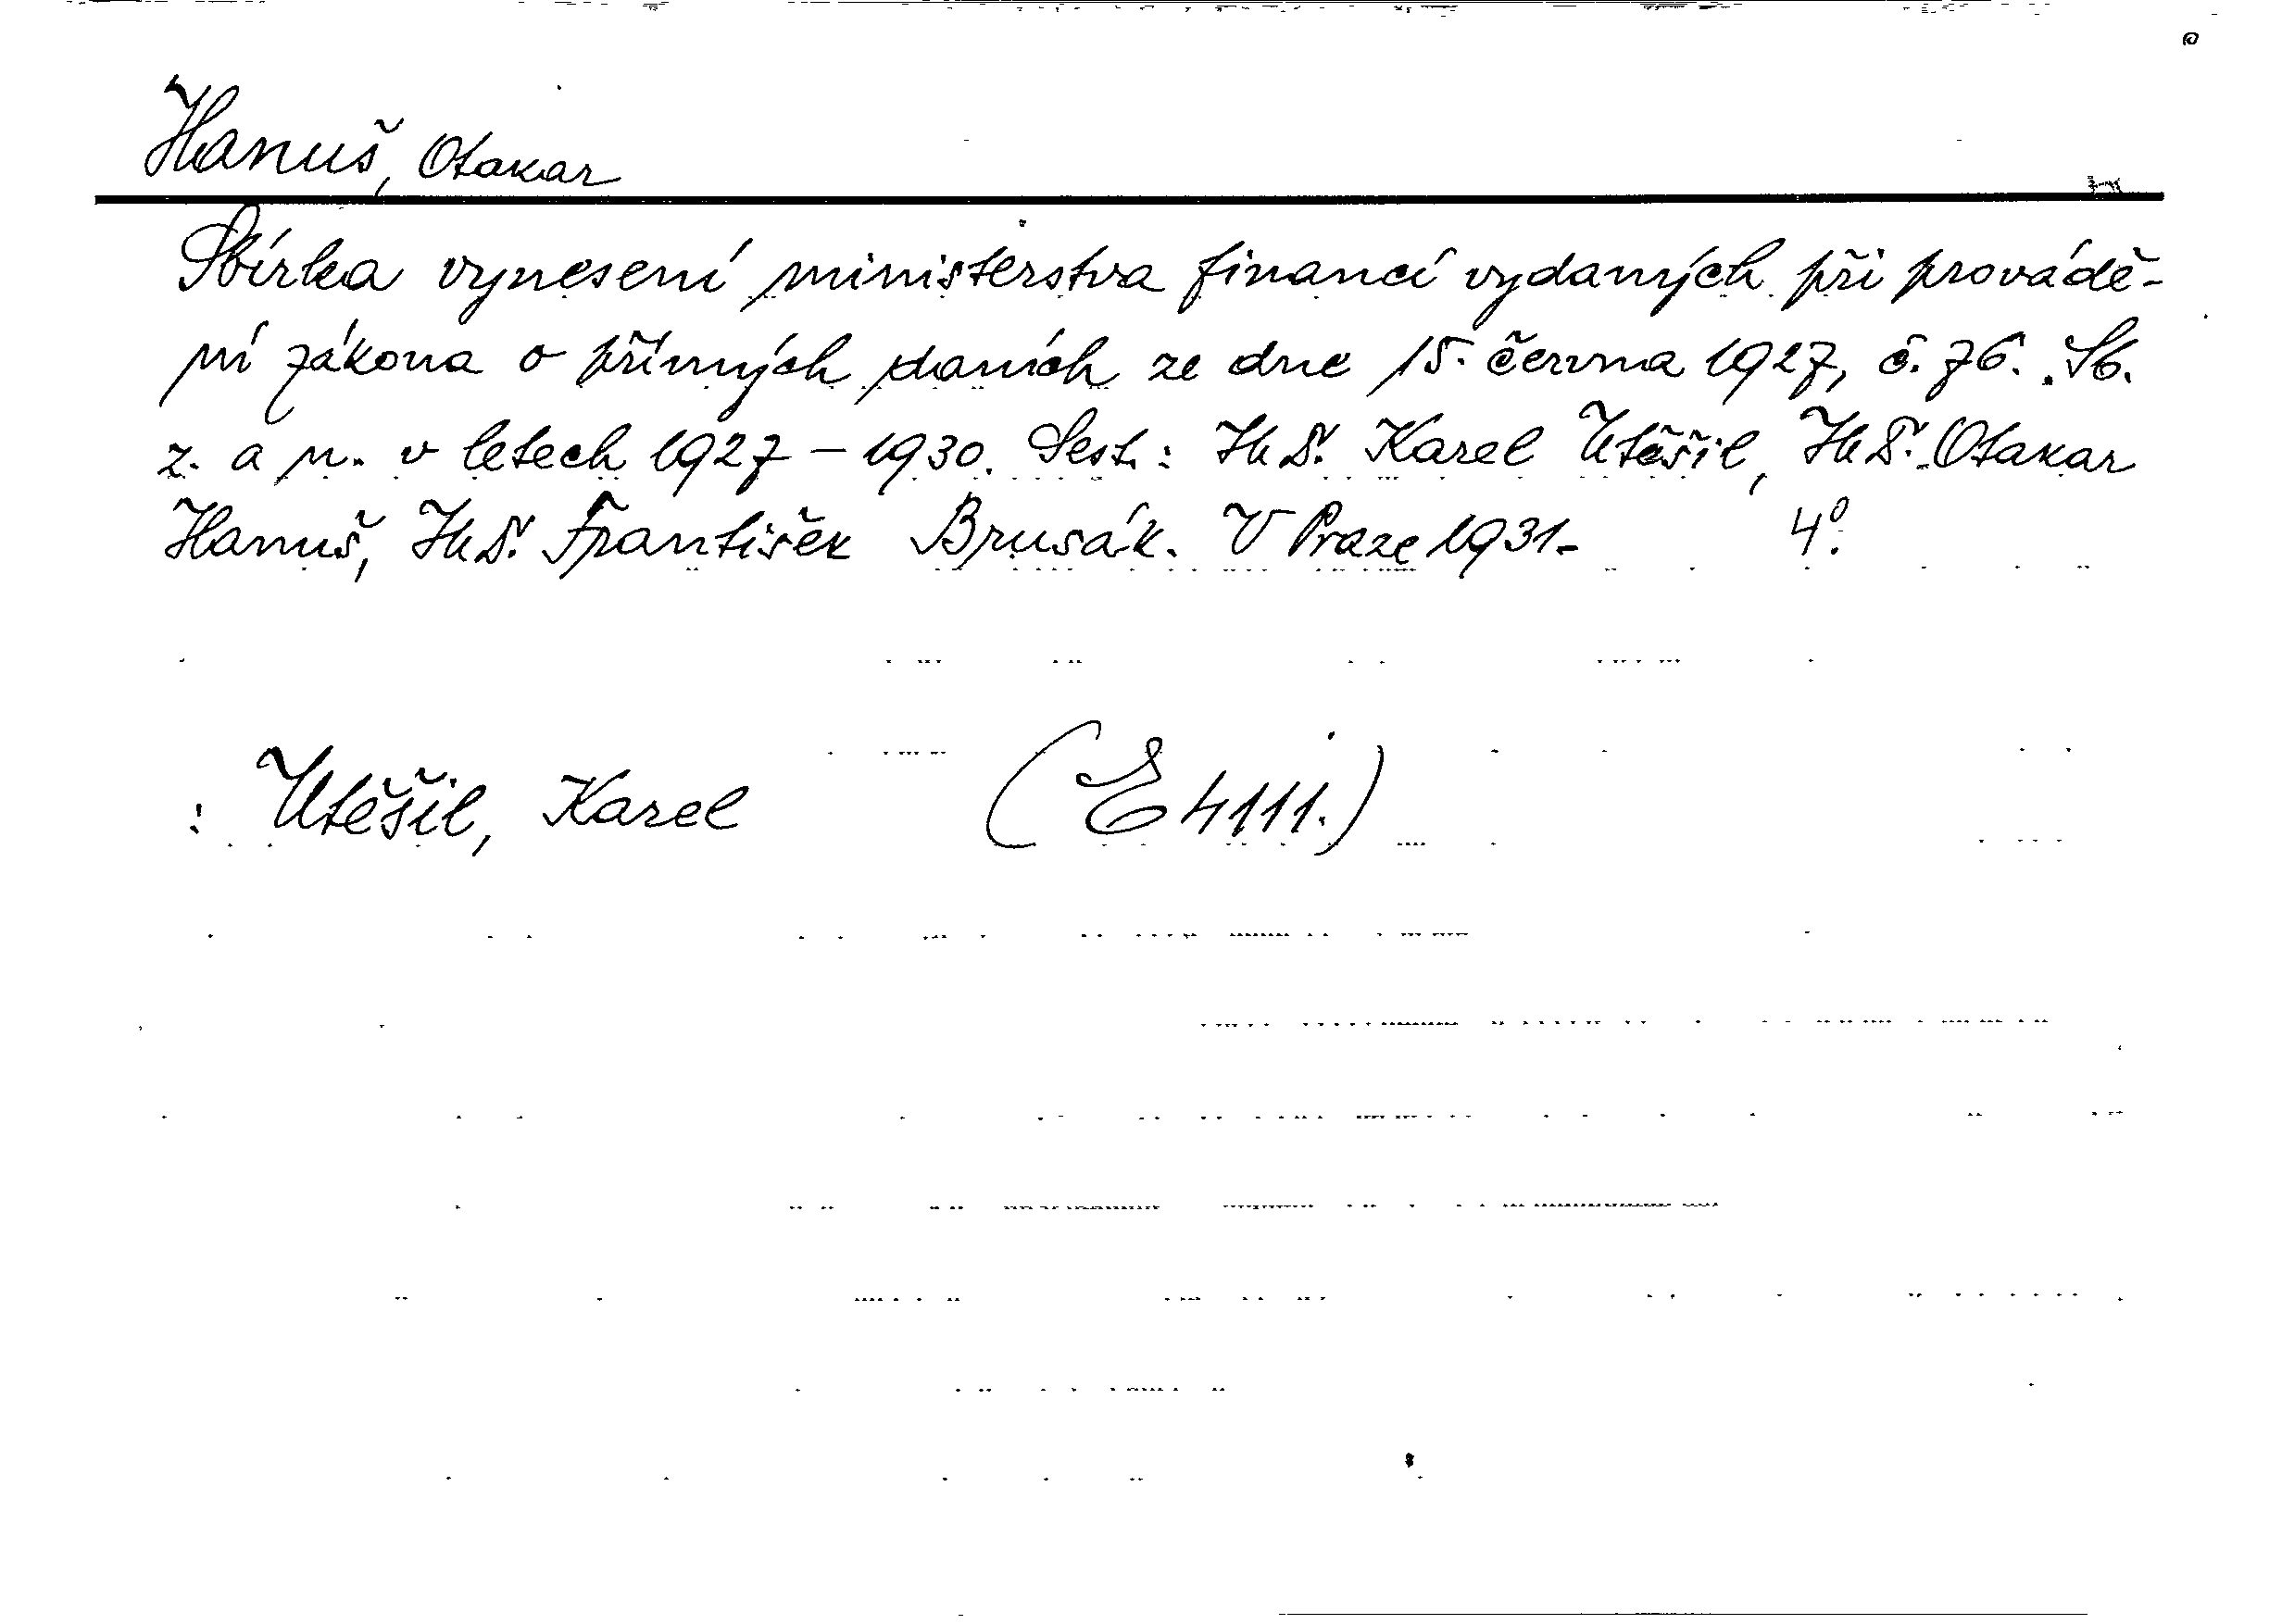 Hanuš, Otakar
Sbírka vynesení ministerstva financí vydaných při provádě-
ní zákona o přímých daních ze dne 15. června 1927, č. 76. Sb.
z. a n. v letech 1927 – 1930. Sest.: JUDr. Karel Utěšil, JUDr. Otakar
Hanuš, JUDr. František Brusák. V Praze 1931. 4°.
: Utěšil, Karel (E 4111.)